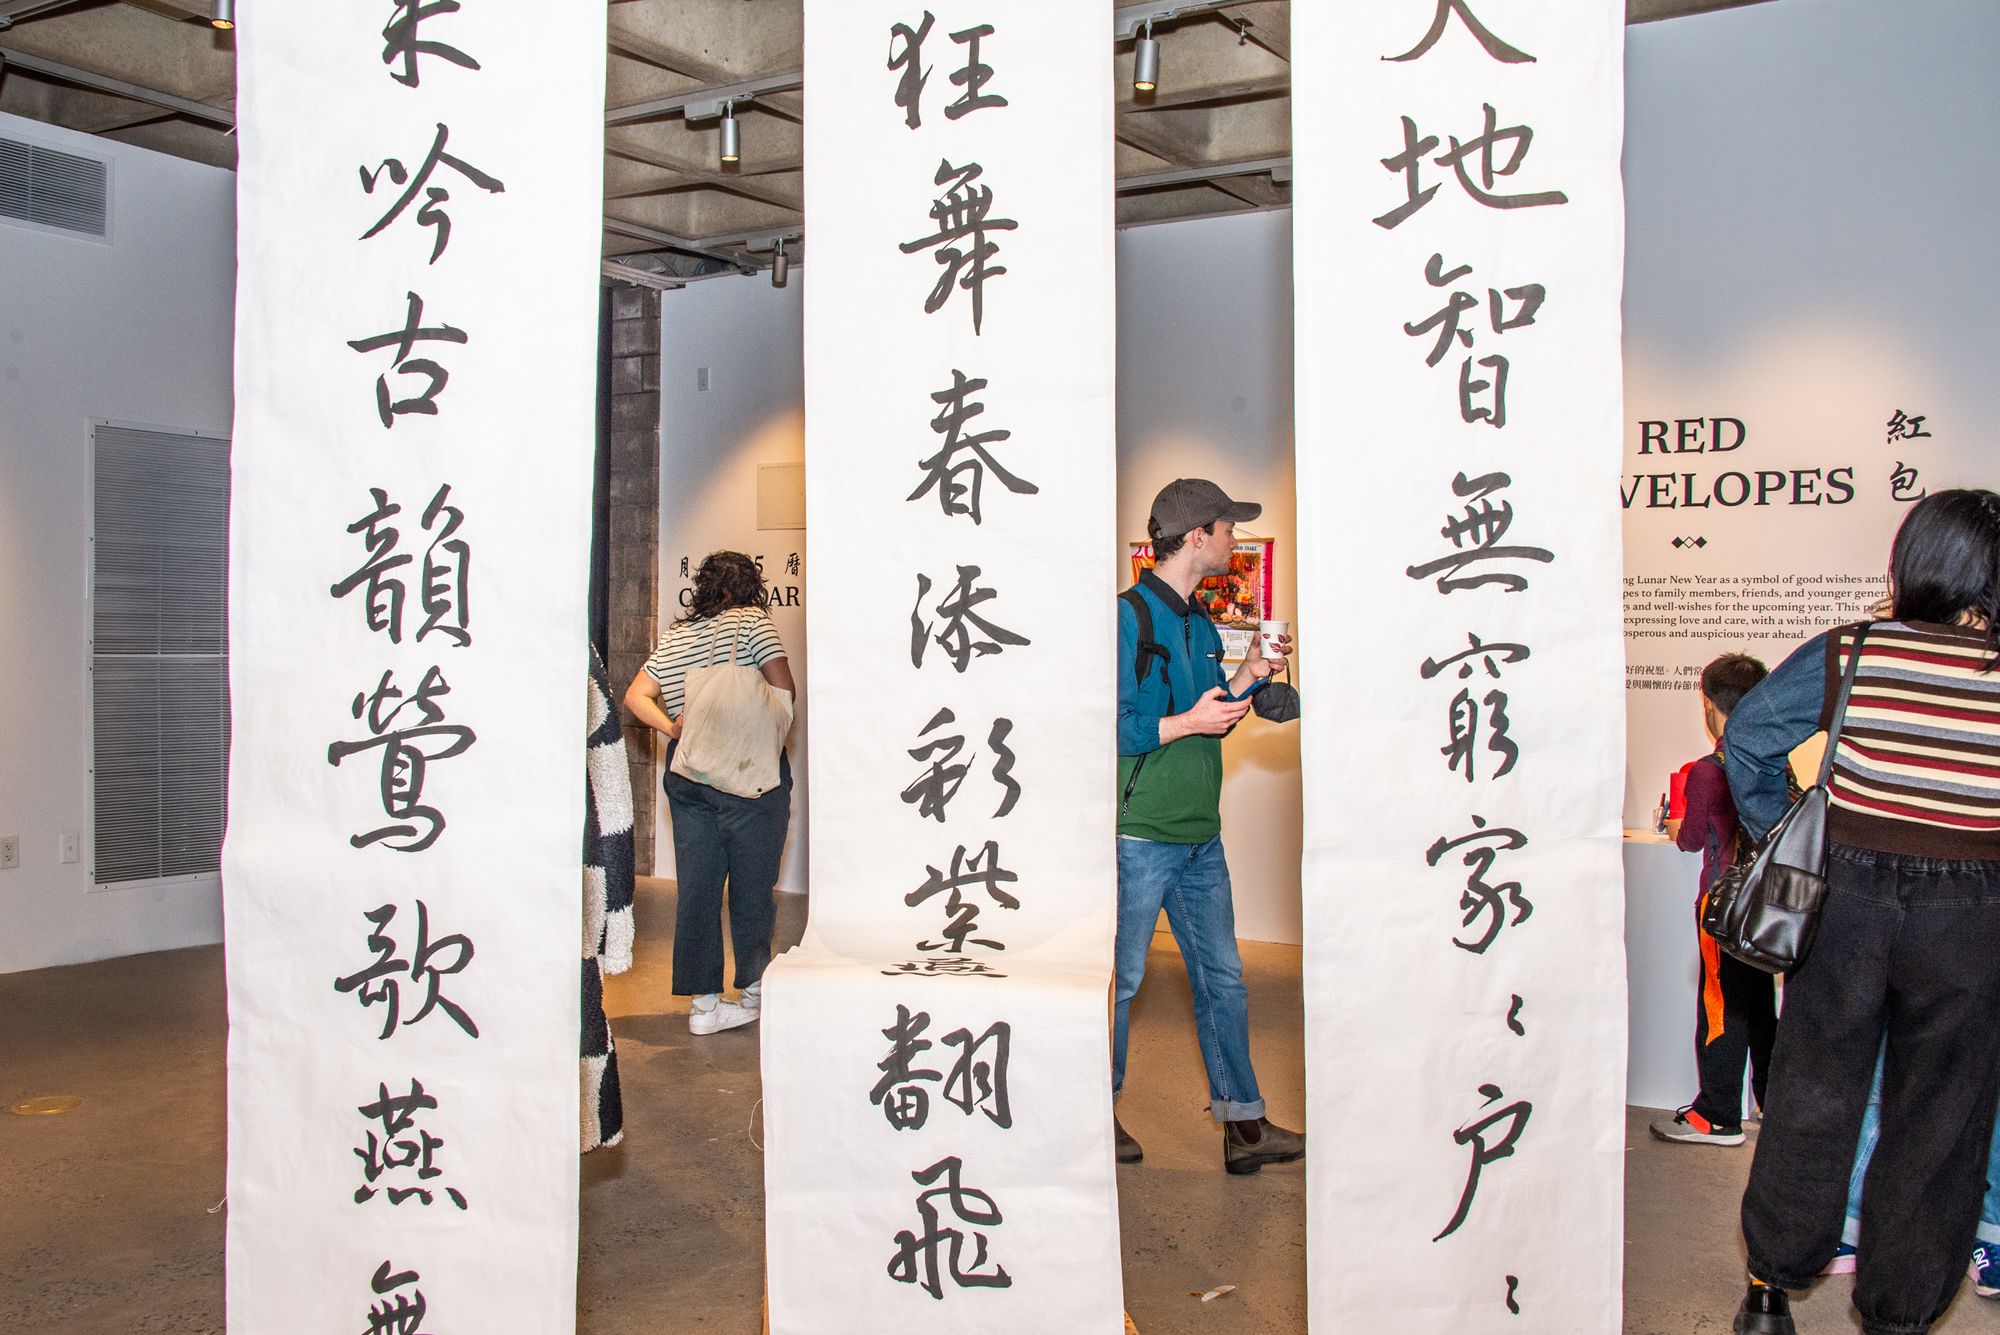 地智無窮家〻戶〻
狂舞春添彩紫燕翻飛
吟古韻鶯歌燕
RED
VELOPES
紅包
ng Lunar New Year as a symbol of good wishes and
pes to family members, friends, and younger genera
gs and well-wishes for the upcoming year. This
expressing love and care, with a wish for the
osperous and auspicious year ahead.
好的祝愿。人們常
愛與關懷的春節
月 5 曆
C DAR
20
OOD SNAKE